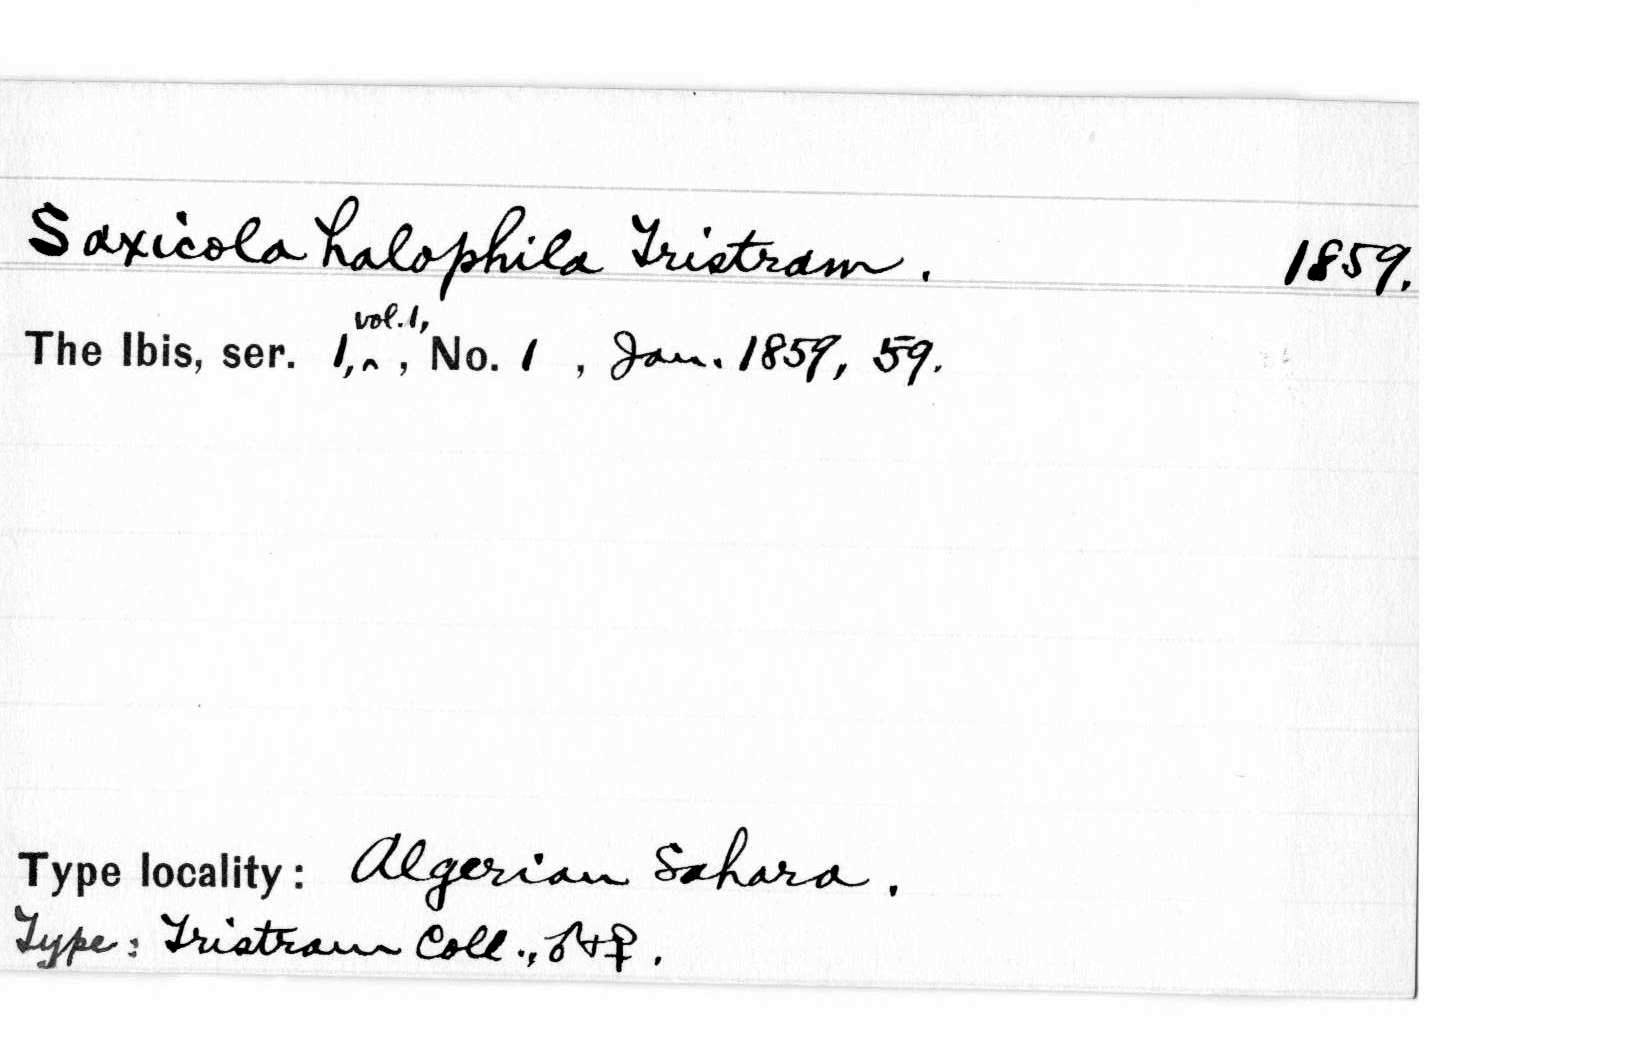 Saxicola halophila Tristram. 1859.
The Ibis, ser. 1, vol. 1, , No. 1 , Jan. 1859, 59.
Type locality: Algerian Sahara.
Type: Tristram Coll., ♂+♀.